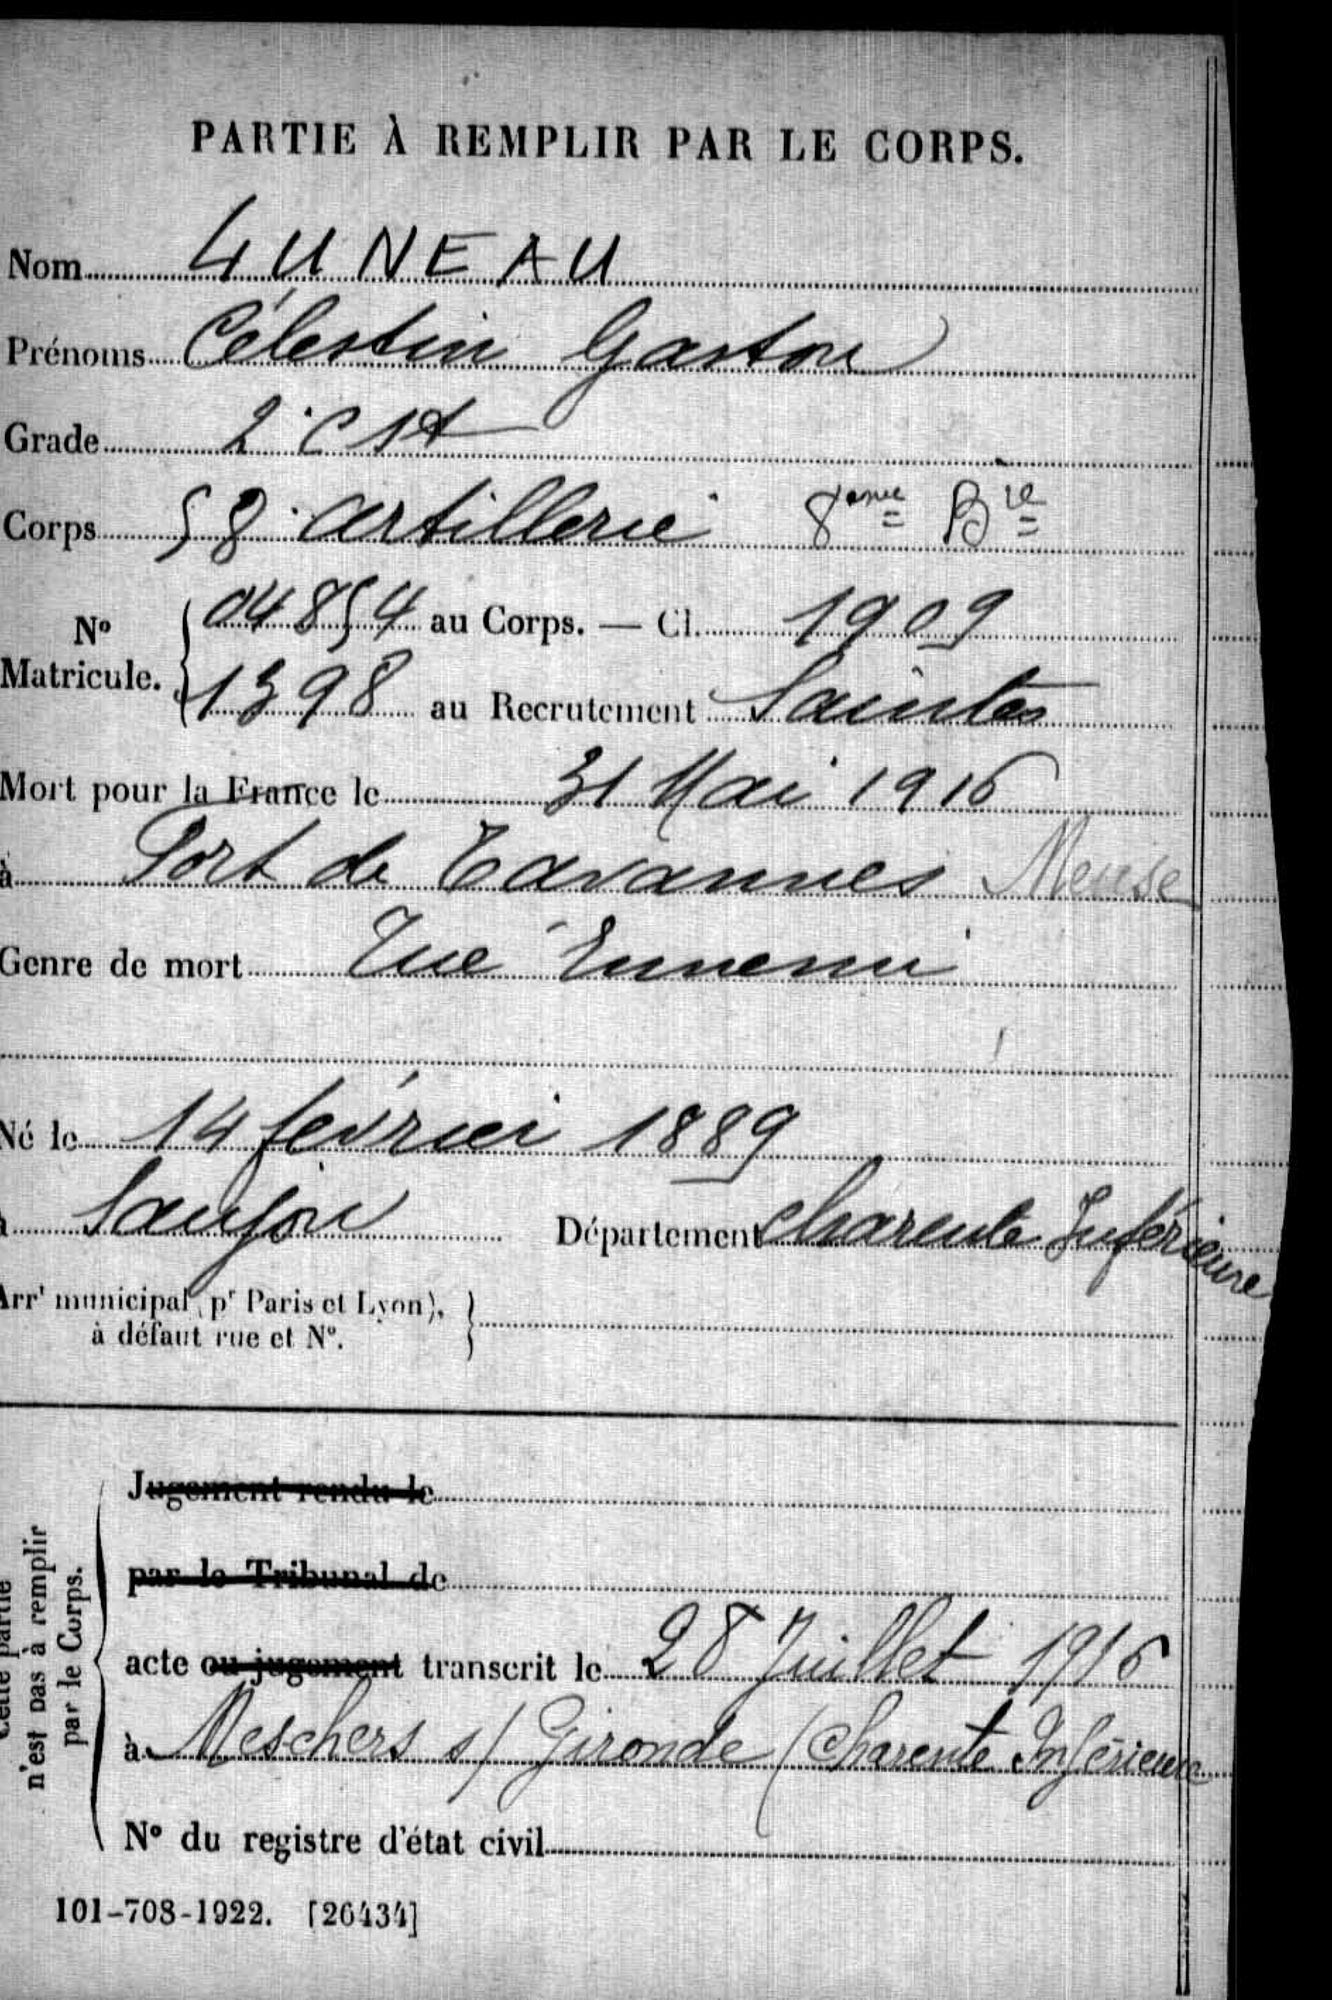 PARTIE À REMPLIR PAR LE CORPS.
Nom LUNEAU
Prénoms Célestin Gaston
Grade 2e c st
Corps 58e artillerie 8eme Bie
No Matricule. 04854 au Corps. — Cl. 1909
1398 au Recrutement Saintes
Mort pour la France le 31 Mai 1916
à Fort de Tavannes Meuse
Genre de mort Tué Ennemi
Né le 14 février 1889
à Saujon Département Charente Inférieure
Arrt municipal (pr Paris et Lyon),
à défaut rue et No.
Cette partie
n'est pas à remplir
par le Corps.
Jugement rendu le
par le Tribunal de
acte ou jugement transcrit le 28 Juillet 1916
à Meschers s/ Gironde (Charente Inférieure
No du registre d'état civil
101-708-1922. [26434]